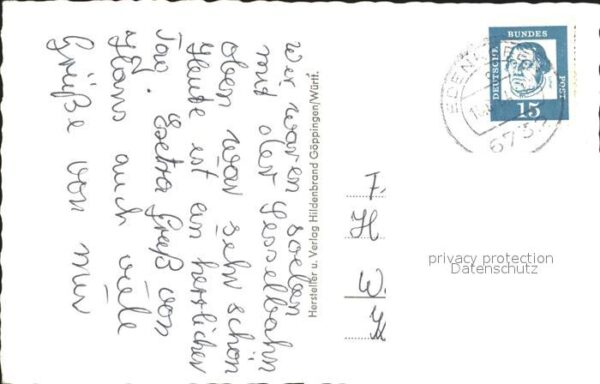 Wir waren soeben
mit der Sesselbahn
oben war sehr schön
Heute ist ein herrlicher
Tag. Extra Gruß von
Hans auch viele
Grüße von mir
Hersteller u. Verlag Hildenbrand Göppingen/Württ.
F.
H
W.
K
DEUTSCHE BUNDES POST
15
EDEN
67 5
privacy protection
Datenschutz